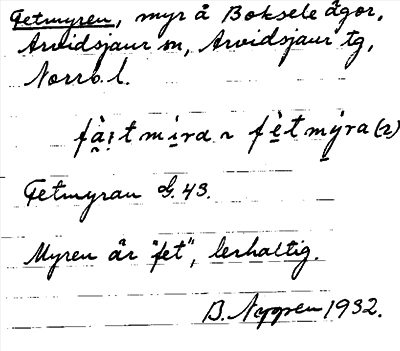 Fetmyren, myr å Boksele ägor,
Arvidsjaur sn, Arvidsjaur tg,
Norrb. l.
fà̤i̯t mi̮ra ~ fèt mýra (2)
Fetmyran G. 43.
Myren är "fet", lerhaltig.
B. Nygren 1932.